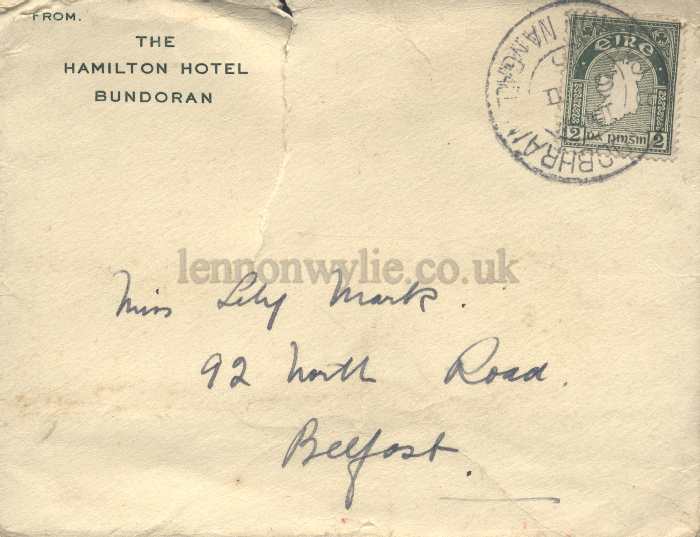 FROM.
THE
HAMILTON HOTEL
BUNDORAN
EIRE
2 2
lennonwylie.co.uk
Miss Lily Mark.
92 North Road.
Belfast.